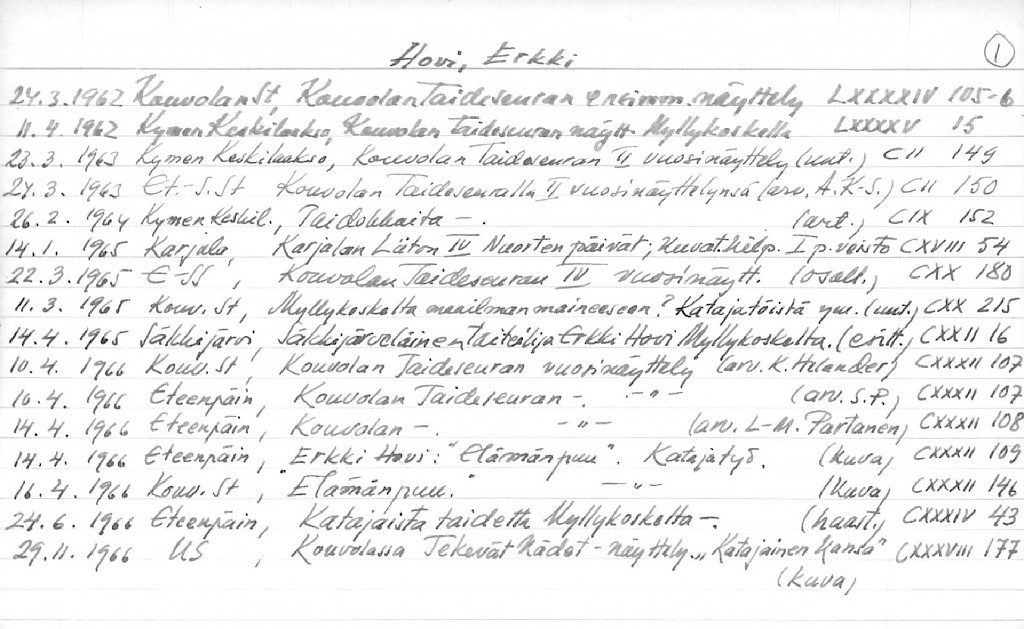 Hovi, Erkki
1
24.3.1962 Kouvolan St, Kouvolan Taideseuran ensimm. näyttely LXXXXIV 105-6
11.4.1962 Kymen Keskilaakso, Kouvolan Taideseuran näytt. Myllykoskella LXXXXV 15
23.3.1963 Kymen Keskilaakso, Kouvolan Taideseuran II vuosinäyttely (uut.) CII 149
24.3.1963 Et.-S.St Kouvolan Taideseuralla II vuosinäyttelynsä (arv. A.K-S.) CII 150
26.2.1964 Kymen Keskil., Taidokkaita -. (art.) CIX 152
14.1.1965 Karjala, Karjalan Liiton IV Nuorten päivät; kuvat.kilp. I p. veisto CXVIII 54
22.3.1965 E-SS, Kouvolan Taideseuran IV vuosinäytt. (osall.) CXX 180
11.3.1965 Kouv. St, Myllykoskelta maailman maineeseen? Katajatöistä ym. (uut.) CXX 215
14.4.1965 Säkkijärvi, Säkkijärveläinen taiteilija Erkki Hovi Myllykoskelta. (esitt.) CXXII 16
10.4.1966 Kouv. St, Kouvolan Taideseuran vuosinäyttely (arv. K. Helander) CXXXII 107
10.4.1966 Eteenpäin, Kouvolan Taideseuran -. -"- (arv. S.P.) CXXXII 107
14.4.1966 Eteenpäin, Kouvolan -. -"- (arv. L-M. Partanen) CXXXII 108
14.4.1966 Eteenpäin, Erkki Hovi: "Elämänpuu". Katajatyö. (kuva) CXXXII 109
16.4.1966 Kouv. St, "Elämänpuu." -"- (kuva) CXXXII 146
24.6.1966 Eteenpäin, Katajaista taidetta Myllykoskelta -. (haast.) CXXXIV 43
29.11.1966 US, Kouvolassa Tekevät Kädet - näyttely. "Katajainen kansa" CXXXVIII 177
(kuva)